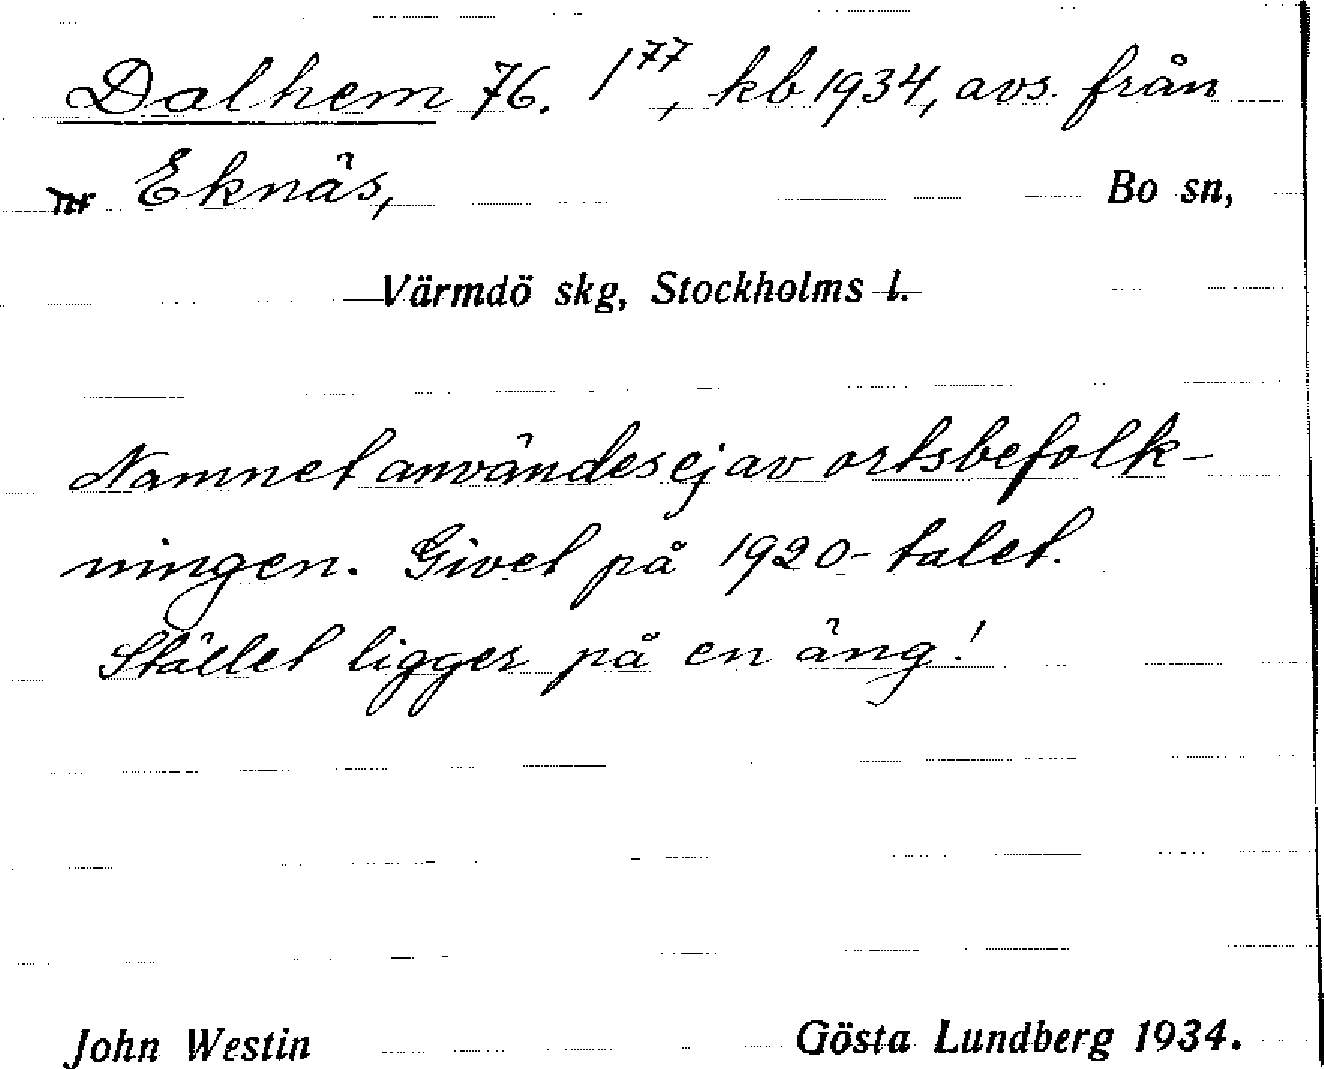 Dalhem 76. 1⁷⁷, kb 1934, avs. från
Eknäs, Bo sn,
Värmdö skg, Stockholms l.
Namnet användes ej av ortsbefolk-
ningen. Givet på 1920-talet.
Stället ligger på en äng!
John Westin Gösta Lundberg 1934.